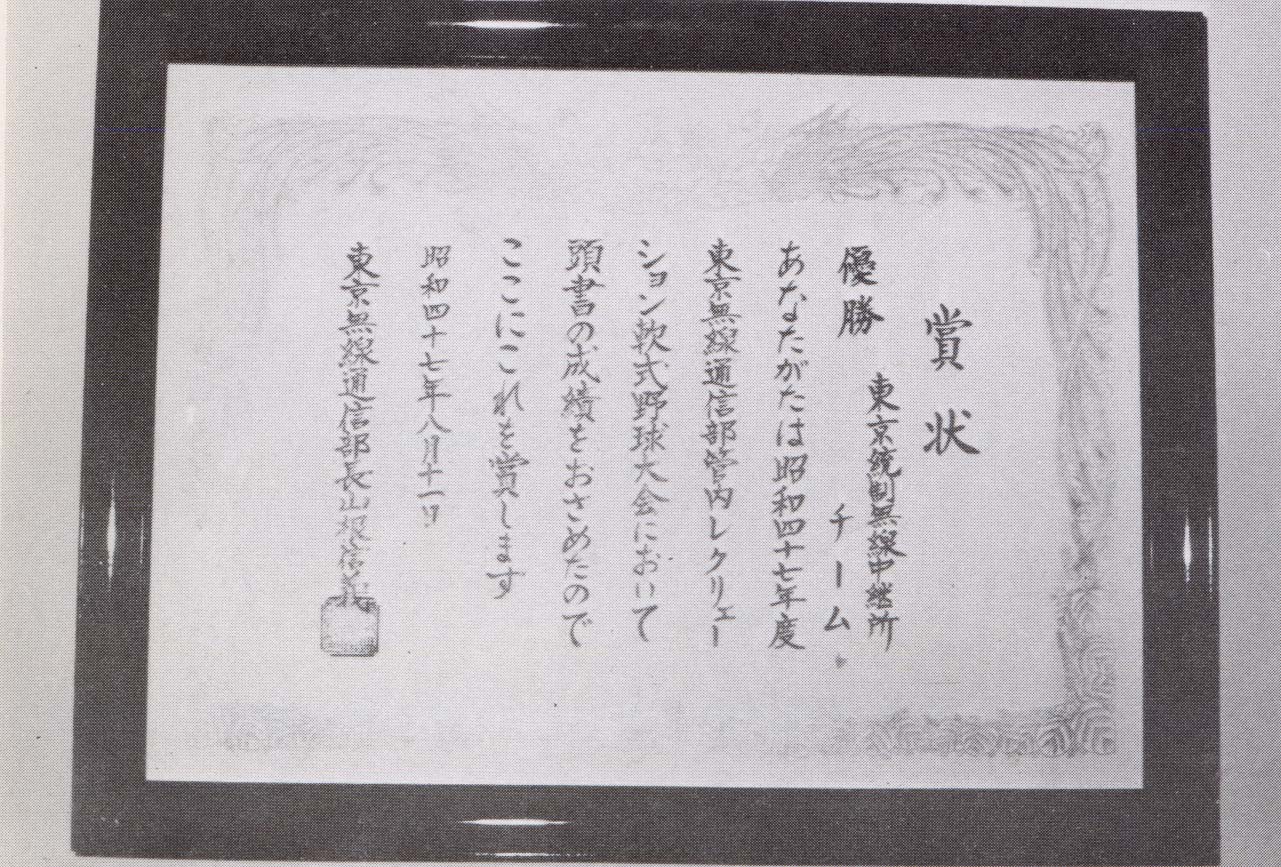 賞状
優勝
東京統制無線中継所
チーム
あなたがたは昭和四十七年度
東京無線通信部管内レクリエー
ション軟式野球大会において
頭書の成績をおさめたので
ここにこれを賞します
昭和四十七年八月十一日
東京無線通信部長山根信義